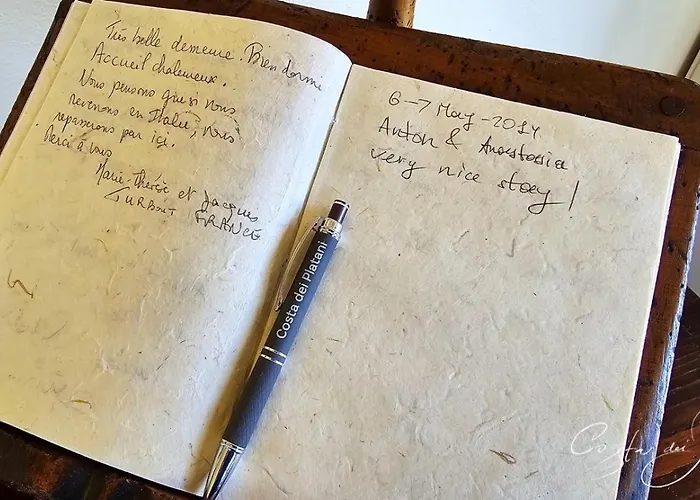 Très belle demeure. Bien dormi
Accueil chaleureux.
Nous pensons que si nous
revenons en Italie, nous
repasserons par ici.
Merci à vous
Marie-Thérèse et Jacques
FRANCE
6-7 May-2014
Anton & Anastasia
very nice stay!
Costa dei Platani
Costa dei